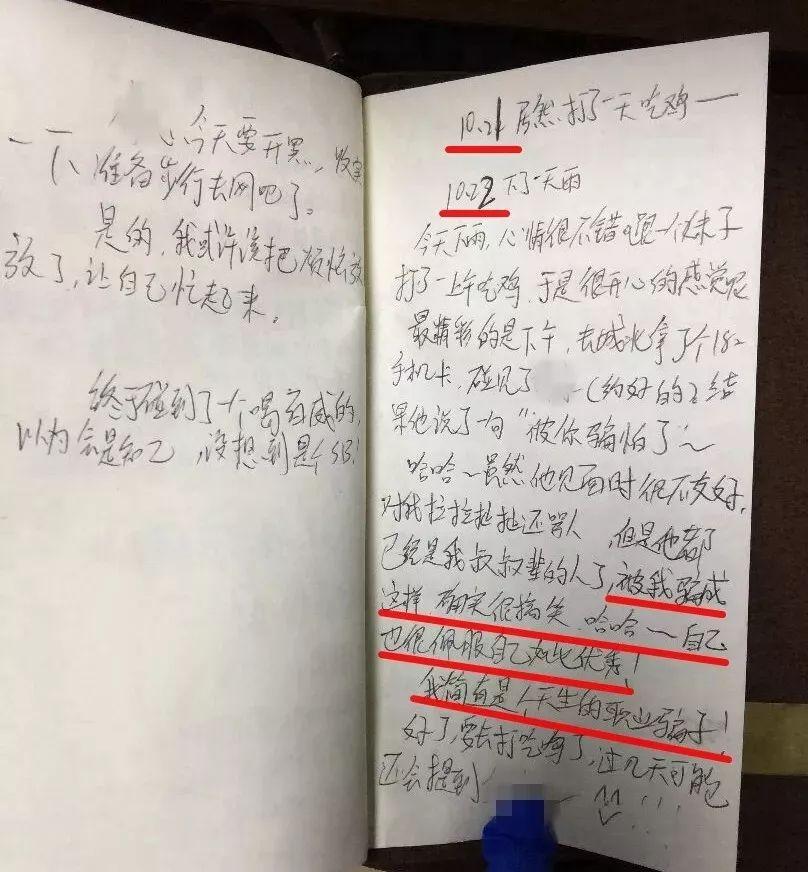 今天要开黑，收拾
一下，准备步行去网吧了。
是的，我或许该把烦恼放
放了，让自己忙起来。
终于碰到了个喝百威的，
以为会是知己，没想到是个SB！
10.21 居然打了一天吃鸡——
10.22 下了一天雨
今天下雨，心情很不错，跟一个妹子
打了一上午吃鸡，于是很开心的感觉呢
最精彩的是下午，去城北拿了个182
手机卡，碰见了（约好的）结
果他说了一句“被你骗怕了”～
哈哈～虽然他见面时很不友好，
对我拉拉扯扯还骂人，但是他都
已经是我叔叔辈的人了，被我骗成
这样，确实很搞笑，哈哈～自己
也很佩服自己如此优秀！
我简直是个天生的职业骗子！
好了，要去打吃鸡了，过几天可能
还会提到